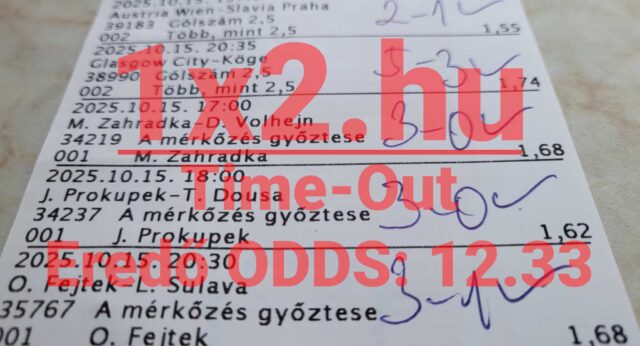 2025.10.15.
Austria Wien-Slavia Praha 2-1
39183 Gólszám 2,5
002 Több, mint 2,5 1,55
2025.10.15. 20:35
Glasgow City-Köge 5-3
38990 Gólszám 2,5
002 Több, mint 2,5 1,74
1x2.hu
2025.10.15. 17:00
M. Zahradka-D. Volhejn 3-0
34219 A mérkőzés győztese
001 M. Zahradka 1,68
Time-Out
2025.10.15. 18:00
J. Prokupek-T. Dousa
34237 A mérkőzés győztese 3-0
001 J. Prokupek 1,62
Eredő ODDS: 12.33
2025.10.15. 20:30
O. Fejtek-L. Sulava 3-1
35767 A mérkőzés győztese
001 O. Fejtek 1,68